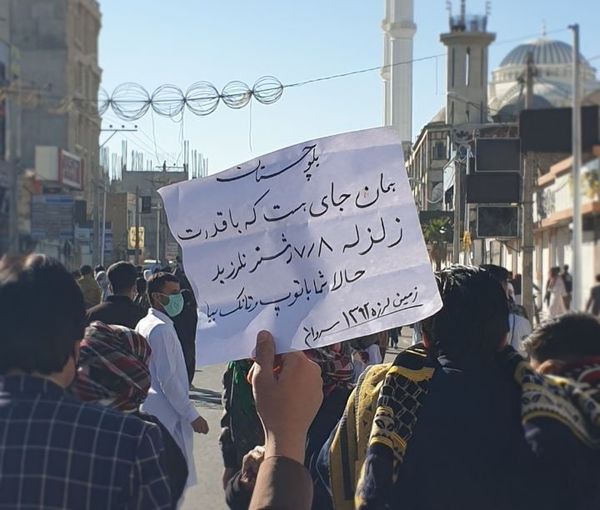 بلوچستان
همان جای هست که با قدرت
زلزله ۷/۸ ریشتر نلرزید
حالا شما با توپ و تانک بیا
زمین لرزه ۱۳۹۲ سراوان